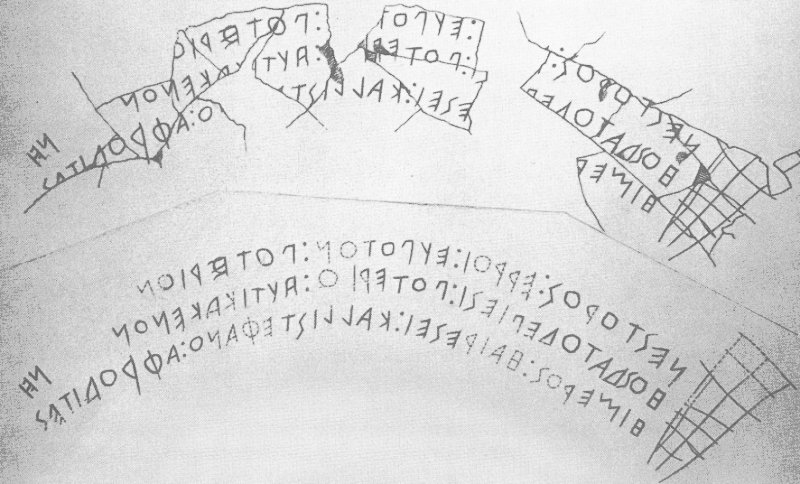 ΝΕΣΤΟΡΟΣ: :ΕΥΠΟΤ :ΠΟΤΕΡΙΟ
ΗΟΣΔΑΤΟΔΕΡ :ΠΟΤΕΡ :ΑΥΤ ΚΑΚΕΝΟΝ
ΗΙΜΕΡ ΕΣΕΙ:ΚΑΛΛΙΣΤ Ο:ΑΦΡΟΔΙΤΑΣ
ΝΕΣΤΟΡΟΣ:ΕΡΡΟΙ:ΕΥΠΟΤΟΝ:ΠΟΤΕΡΙΟΝ
ΗΟΣΔΑΤΟΔΕΠΙΕΣΙ:ΠΟΤΕΡΙΟ:ΑΥΤΙΚΑΚΕΝΟΝ
ΗΙΜΕΡΟΣ:ΗΑΙΡΕΣΕΙ:ΚΑΛΛΙΣΤΕΦΑΝΟ:ΑΦΡΟΔΙΤΑΣ